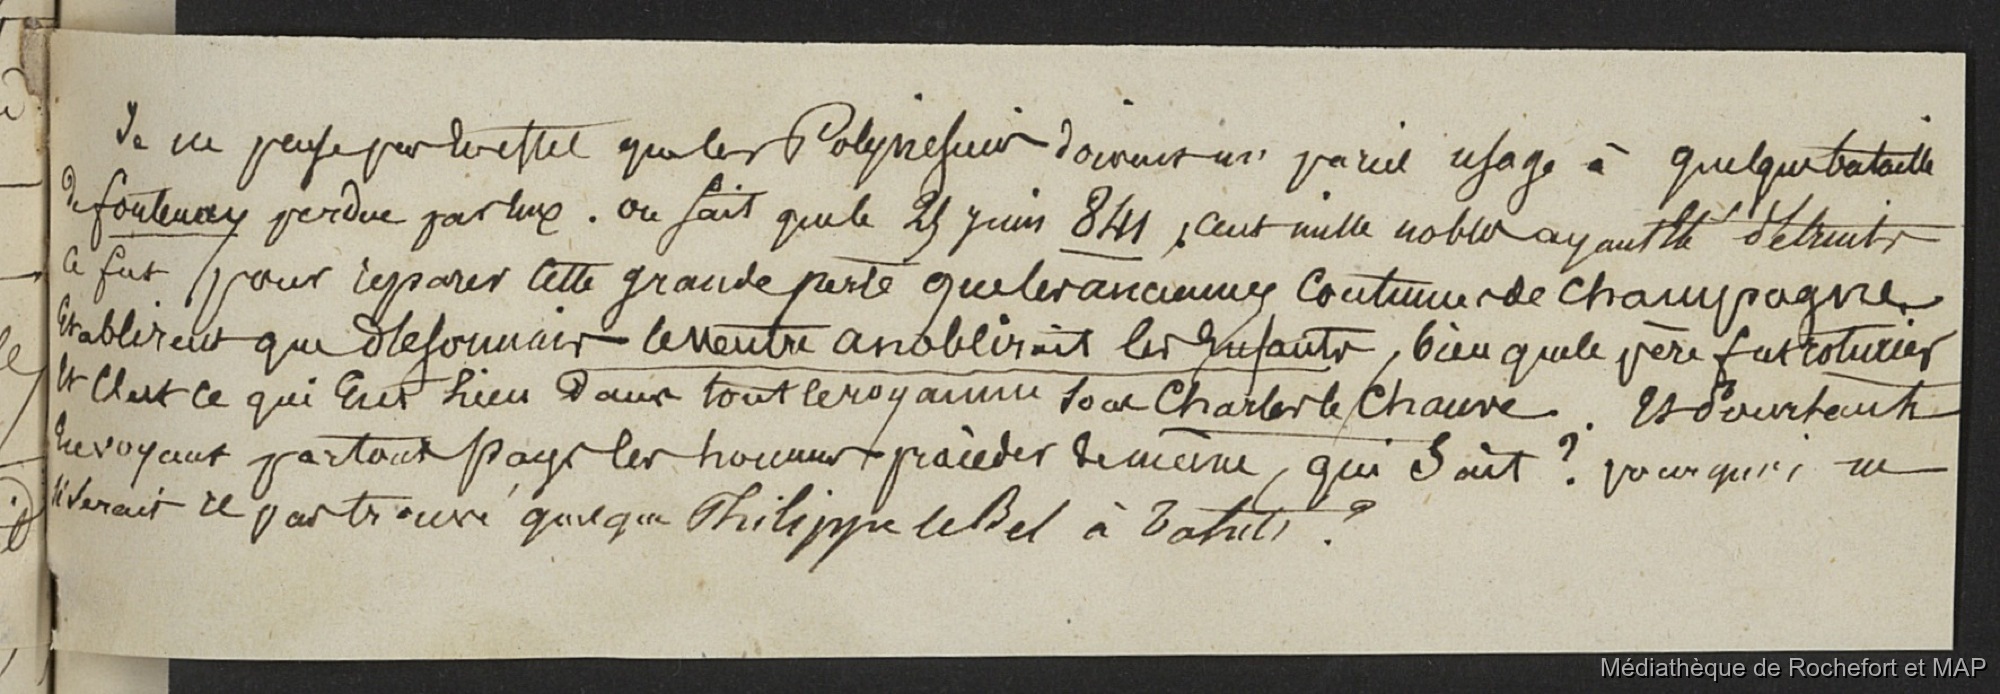 Je ne pense pas en effet que les Polynésiens doivent un pareil usage à quelque bataille
de fontenay perdue par eux. on sait que le 25 juin 841, cent mille nobles ayant été détruits
ce fut pour réparer cette grande perte que les anciennes Coutumes de Champagne
Etablirent que désormais le ventre anoblirait les Enfants, bien que le père fut roturier
Et c'est ce qui Eut lieu dans tout le royaume sous Charles le Chauve. Et Pourtant
En voyant partout Pays les hommes procéder de même, qui Sait? pourquoi ne
s'Serait il pas trouvé quelque Philippe le Bel à Tahiti?
Médiathèque de Rochefort et MAP